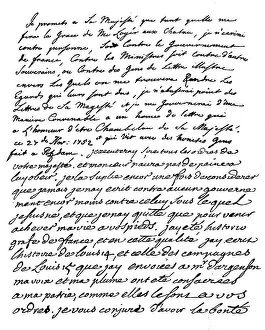 Je promets a Sa Majesté que tant quelle me
fera la Grace de Me Loger aux Chatau, je n'ecrirai
contre personne, Soit Contre le Gouvernement
de france, Contre les Ministres, soit contre d'autre
Souverains, ou Contre des Gens de Lettre illustre
envers Les Quels on me trouvera Rendre Les
Egards qui leur sont dus, je
Lettres de Sa Majesté et je me Gouvernerai d'une
Maniere Convenable a un homme de lettre qui
a L'honneur d'etre Chambelan de Sa Majesté.
ce 27e Nov. 1752 et qui Vit avec des honetes Gens
fait a
votre majesté, et mon coeur naura pas de peine a
luy obeir, je la suplie encor une fois de considerer
que jamais je nay ecrit contre aucun gouverne
ment encor moins contre celuy sous le quel
je suis né, et que je nay quitté que pour venir
achever ma vie a vos pieds. jay eté histório
grafe de france et en cette qualité jay ecrit
lhistoire de louis 14 et celle des campagnes
de Louis 15 que jay envoiées a mr dargenson
ma voix et ma plume ont eté consacrées
a ma patrie, comme elles le sont a vos
ordres. je vous conjure d'avoir la bonté